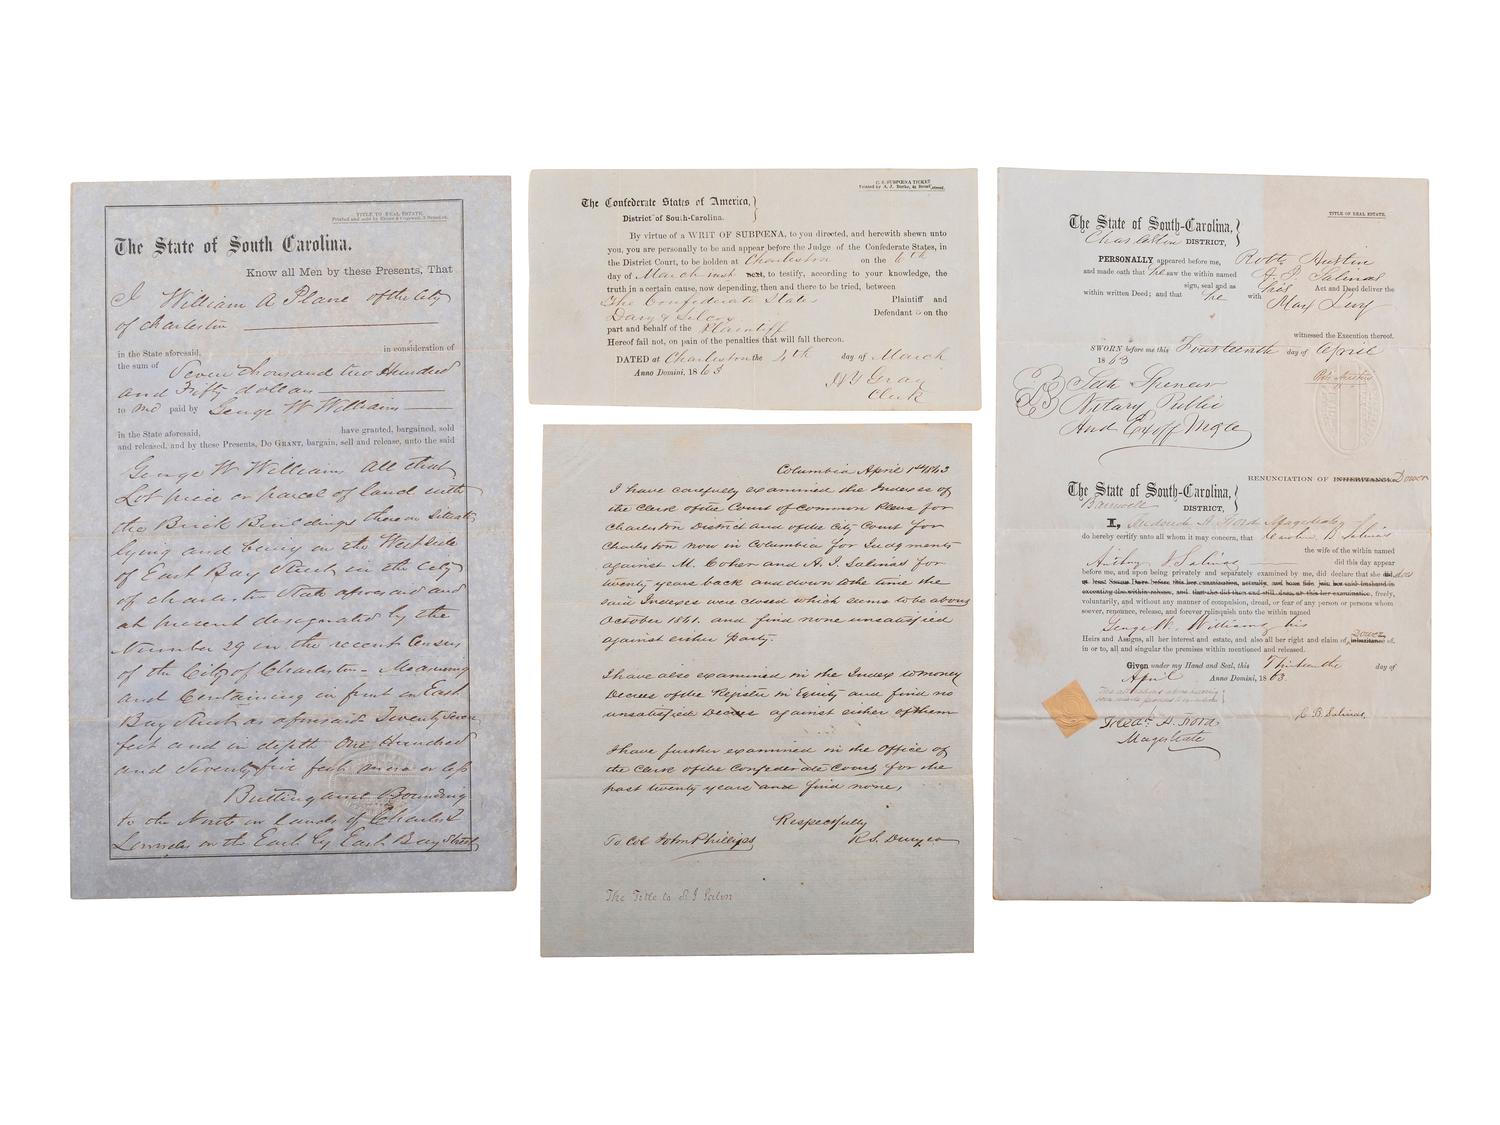 TITLE TO REAL ESTATE.
Printed and sold by Evans & Cogswell, 3 Broad-st.
The State of South Carolina.
Know all Men by these Presents, That
I William A Plane of the City
of Charleston
in the State aforesaid, in consideration of
the sum of Seven Thousand two Hundred
and Fifty dollars
to me paid by George W Williams
in the State aforesaid, have granted, bargained, sold
and released, and by these Presents, Do GRANT, bargain, sell and release, unto the said
George W Williams All that
Lot piece or parcel of land with
the Brick Buildings thereon Situate
lying and being on the West side
of East Bay Street in the City
of Charleston State aforesaid and
at present designated by the
Number 29 in the recent Census
of the City of Charleston - Measuring
and Containing in front on East
Bay Street as aforesaid Twenty Seven
feet and in depth One Hundred
and Seventy five feet more or less
Butting and Bounding
to the North on lands of Charles T
Lowndes on the East by East Bay Street
C. S. SUBPŒNA TICKET
Printed by A. J. Burke, 40 Broad street.
The Confederate States of America,
District of South-Carolina.
By virtue of a WRIT OF SUBPŒNA, to you directed, and herewith shewn unto
you, you are personally to be and appear before the Judge of the Confederate States, in
the District Court, to be holden at Charleston on the 6th
day of March inst next, to testify, according to your knowledge, the
truth in a certain cause, now depending, then and there to be tried, between
The Confederate States Plaintiff and
Defendant s on the
part and behalf of the Plaintiff
Hereof fail not, on pain of the penalties that will fall thereon.
DATED at Charleston the 4th day of March
Anno Domini, 1863
H Y Gray
Clerk
Columbia April 1st 1863
I have carefully examined the Indexes of
the Clerk of the Court of Common Pleas for
Charleston District and of the City Court for
Charleston now in Columbia for Judgments
against M. Cohen and A. J. Salinas for
twenty years back and down to the time the
said Indexes were closed which seems to be about
October 1861. and find none unsatisfied
against either party.
I have also examined in the Index to money
Decrees of the Register in Equity and find no
unsatisfied Decree against either of them
I have further examined in the Office of
the Clerk of the Confederate Court for the
past twenty years and find none,
Respectfully
To Col John Phillips R. S. Duryea
The Title to
TITLE OF REAL ESTATE.
The State of South-Carolina,
Charleston DISTRICT,
PERSONALLY appeared before me, Robt Austin
and made oath that he saw the within named A. J. Salinas
sign, seal and as his Act and Deed deliver the
within written Deed; and that he with Max Levy
witnessed the Execution thereof.
SWORN before me this Fourteenth day of April
1863
Robt Austin
Seth Spencer
Notary Public
And Ex off Mage
RENUNCIATION OF INHERITANCE. Dower
The State of South-Carolina,
Barnwell DISTRICT,
I, Frederick A Ford Magistrate
do hereby certify unto all whom it may concern, that Caroline B Salinas
the wife of the within named
Anthony J Salinas did this day appear
before me, and upon being privately and separately examined by me, did declare that she did does
at least Seven Days before this her examination, actually, and bona fide join her said husband in
executing the within release, and that she did then and still does, at this her examination, freely,
voluntarily, and without any manner of compulsion, dread, or fear of any person or persons whom
soever, renounce, release, and forever relinquish unto the within named
George W. Williams his
Heirs and Assigns, all her interest and estate, and also all her right and claim of Dower inheritance of,
in or to, all and singular the premises within mentioned and released.
Given under my Hand and Seal, this Thirteenth day of
April Anno Domini, 1863.
C B Salinas.
Fredk. A. Ford
Magistrate